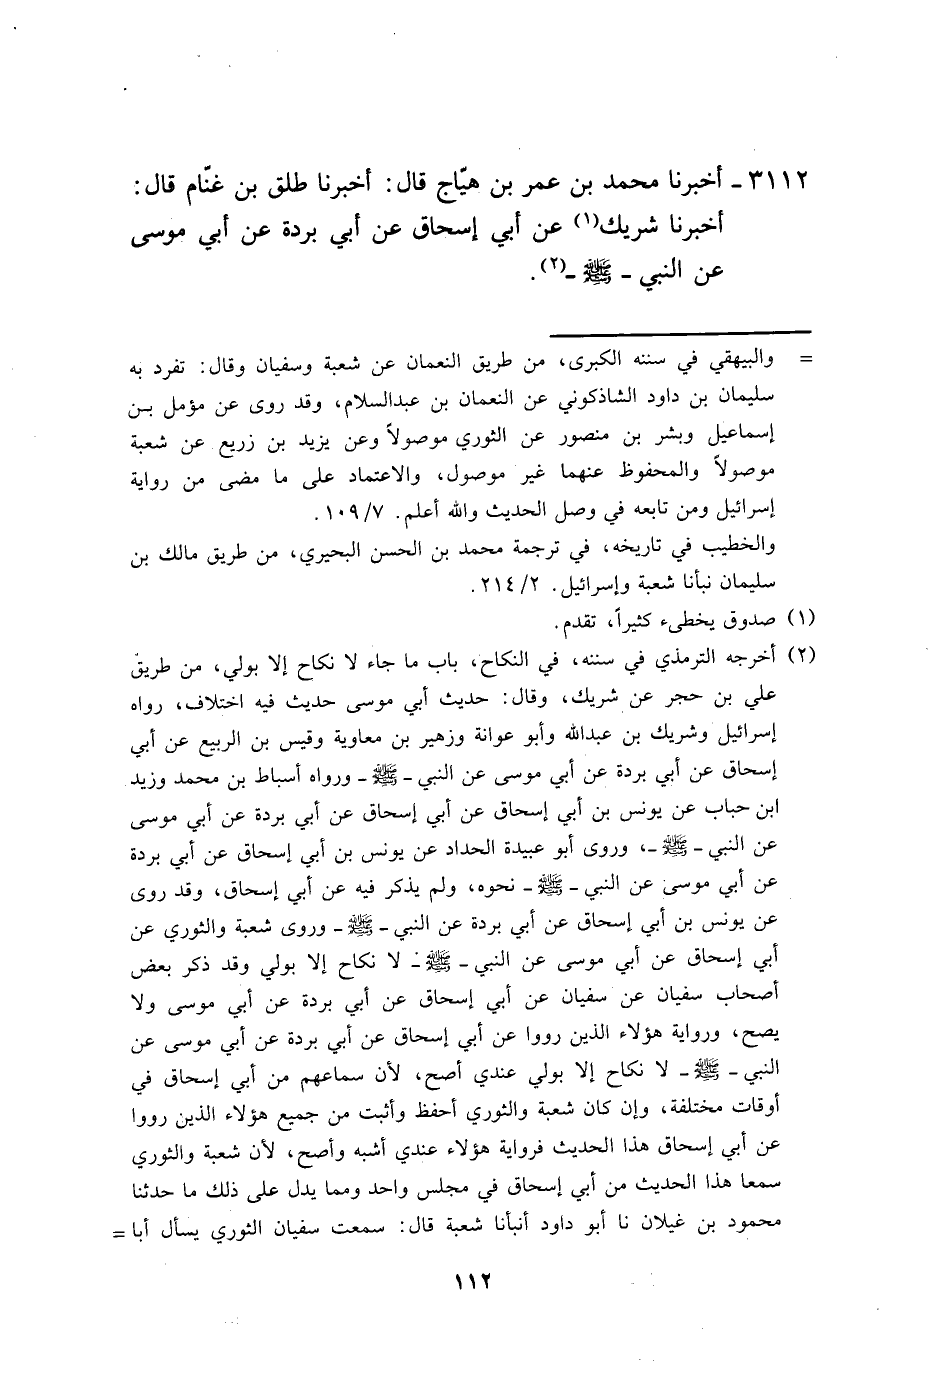 ٣١١٢ ـ أخبرنا محمد بن عمر بن هيّاج قال: أخبرنا طلق بن غنّام قال:
أخبرنا شريك(١) عن أبي إسحاق عن أبي بردة عن أبي موسى
عن النبي ـ ﷺ ـ(٢).
= والبيهقي في سننه الكبرى، من طريق النعمان عن شعبة وسفيان وقال: تفرد به
سليمان بن داود الشاذكوني عن النعمان بن عبدالسلام، وقد روى عن مؤمل بـن
إسماعيل وبشر بن منصور عن الثوري موصولاً وعن يزيد بن زريع عن شعبة
موصولاً والمحفوظ عنهما غير موصول، والاعتماد على ما مضى من رواية
إسرائيل ومن تابعه في وصل الحديث والله أعلم. ١٠٩/٧.
والخطيب في تاريخه، في ترجمة محمد بن الحسن البحيري، من طريق مالك بن
سليمان نبأنا شعبة وإسرائيل. ٢١٤/٢.
(١) صدوق يخطىء كثيراً، تقدم.
(٢) أخرجه الترمذي في سننه، في النكاح، باب ما جاء لا نكاح إلا بولي، من طريق
علي بن حجر عن شريك، وقال: حديث أبي موسى حديث فيه اختلاف، رواه
إسرائيل وشريك بن عبدالله وأبو عوانة وزهير بن معاوية وقيس بن الربيع عن أبي
إسحاق عن أبي بردة عن أبي موسى عن النبي ـ ﷺ ـ ورواه أسباط بن محمد وزيد
ابن حباب عن يونس بن أبي إسحاق عن أبي إسحاق عن أبي بردة عن أبي موسى
عن النبي ـ ﷺ ـ، وروى أبو عبيدة الحداد عن يونس بن أبي إسحاق عن أبي بردة
عن أبي موسى عن النبي ـ ﷺ ـ نحوه، ولم يذكر فيه عن أبي إسحاق، وقد روى
عن يونس بن أبي إسحاق عن أبي بردة عن النبي ـ ﷺ ـ وروى شعبة والثوري عن
أبي إسحاق عن أبي موسى عن النبي ـ ﷺ ـ لا نكاح إلا بولي وقد ذكر بعض
أصحاب سفيان عن سفيان عن أبي إسحاق عن أبي بردة عن أبي موسى ولا
يصح، ورواية هؤلاء الذين رووا عن أبي إسحاق عن أبي بردة عن أبي موسى عن
النبي ـ ﷺ ـ لا نكاح إلا بولي عندي أصح، لأن سماعهم من أبي إسحاق في
أوقات مختلفة، وإن كان شعبة والثوري أحفظ وأثبت من جميع هؤلاء الذين رووا
عن أبي إسحاق هذا الحديث فرواية هؤلاء عندي أشبه وأصح، لأن شعبة والثوري
سمعا هذا الحديث من أبي إسحاق في مجلس واحد ومما يدل على ذلك ما حدثنا
محمود بن غيلان نا أبو داود أنبأنا شعبة قال: سمعت سفيان الثوري يسأل أبا =
١١٢